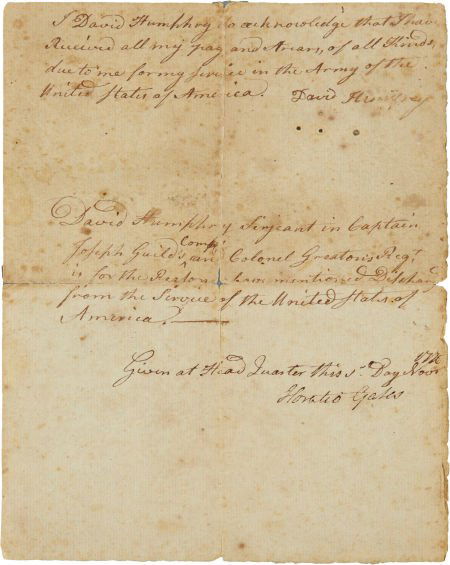 I David Humphry do acknowledge that I have
Received all my pay and Arears, of all Kinds,
due to me for my service in the Army of the
United States of America. David Humfrey
David Humphry Serjeant in Captain
Joseph Guild's Comp. and Colonel Greaton's Reg.t
is for the Reason mentioned Discharg
from the Service of the United States of
America.
Given at Head Quarter this 5 Day Nov.r
Horatio Gates